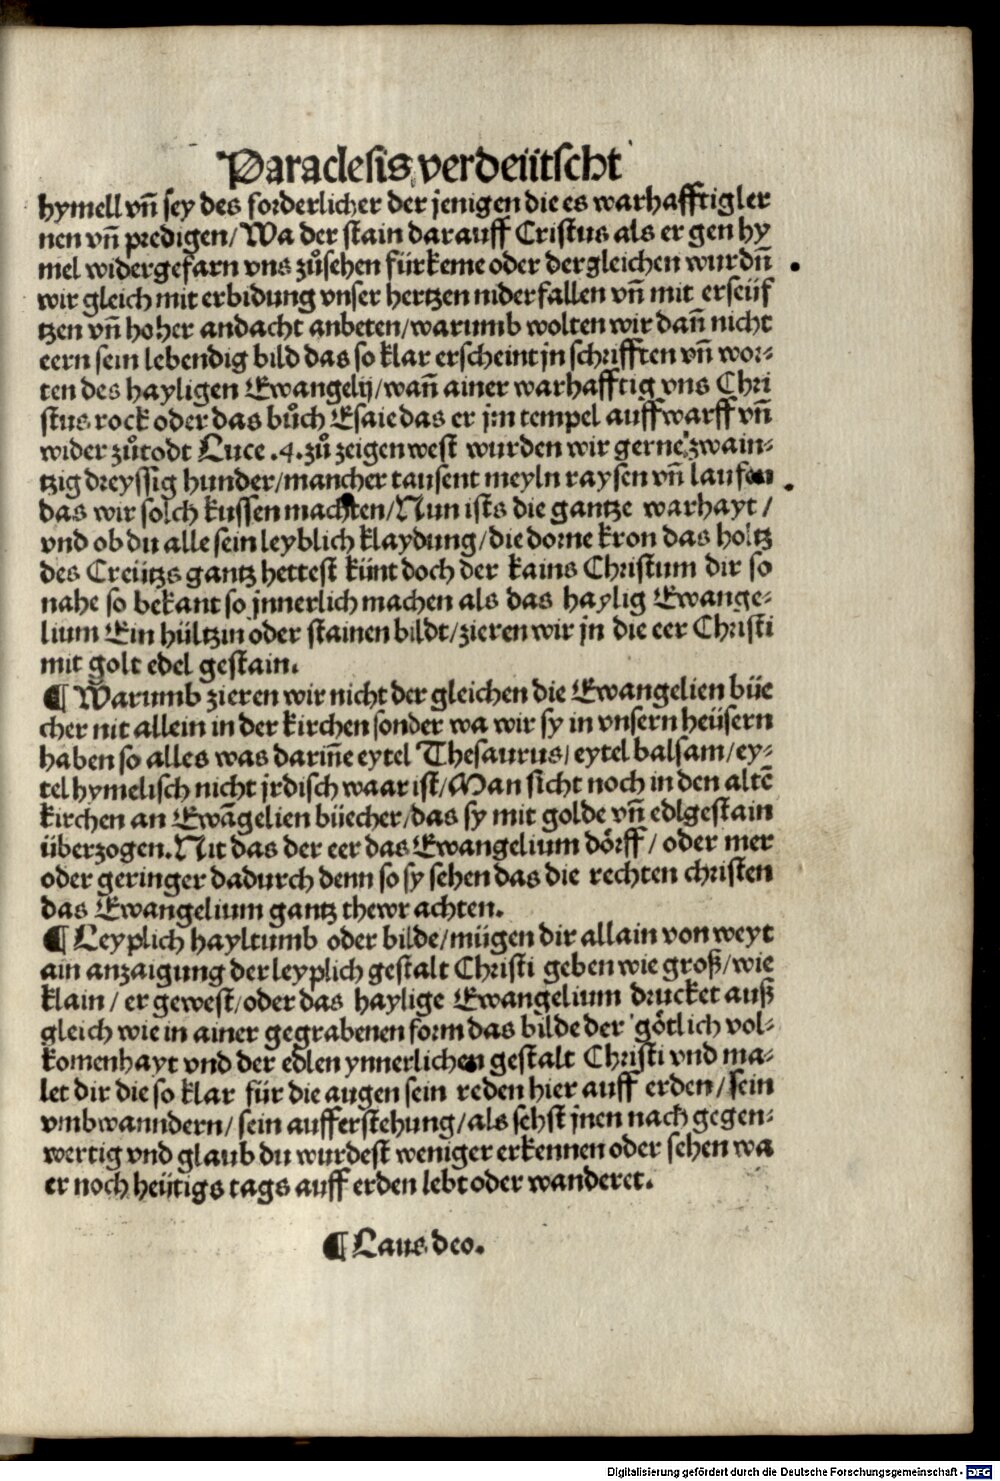 Paraclesis verdeütscht
hymell vñ sey des forderlicher der jenigen die es warhafftig ler
nen vñ predigen/Wa der stain darauff Cristus als er gen hy
mel widergefarn vns zůsehen fürkeme oder dergleichen wurdñ
wir gleich mit erbidung vnser hertzen niderfallen vñ mit erseüf
tzen vñ hoher andacht anbeten/warumb wolten wir dañ nicht
eern sein lebendig bild das so klar erscheint jn schrifften vñ wor⸗
ten des hayligen Ewangelij/wañ ainer warhafftig vns Chri
stus rock oder das bůch Esaie das er jm tempel auffwarff vñ
wider zůtodt Luce .4. zů zeigen west wurden wir gerne zwain⸗
tzig dreyssig hunder/mancher tausent meyln raysen vñ laufen
das wir solch kussen machten/Nun ists die gantze warhayt/
vnd ob du alle sein leyblich klaydung/die dorne kron das holtz
des Creützs gantz hettest künt doch der kains Christum dir so
nahe so bekant so jnnerlich machen als das haylig Ewange⸗
lium Ein hültzin oder stainen bildt/zieren wir jn die eer Christi
mit golt edel gestain.
¶ Warumb zieren wir nicht der gleichen die Ewangelien büe
cher nit allein in der kirchen sonder wa wir sy in vnsern heüsern
haben so alles was dariñe eytel Thesaurus/eytel balsam/ey⸗
tel hymelisch nicht jrdisch waar ist/Man sicht noch in den altẽ
kirchen an Ewãgelien büecher/das sy mit golde vñ edlgestain
überzogen. Nit das der eer das Ewangelium dörff/oder mer
oder geringer dadurch denn so sy sehen das die rechten christen
das Ewangelium gantz thewr achten.
¶ Leyplich hayltumb oder bilde/mügen dir allain von weyt
ain anzaigung der leyplich gestalt Christi geben wie groß/wie
klain/er gewest/oder das haylige Ewangelium drucket auß
gleich wie in ainer gegrabenen form das bilde der götlich vol⸗
komenhayt vnd der edlen ynnerlichen gestalt Christi vnd ma⸗
let dir die so klar für die augen sein reden hier auff erden/sein
vmbwanndern/sein aufferstehung/als sehst jnen nach gegen⸗
wertig vnd glaub du wurdest weniger erkennen oder sehen wa
er noch heütigs tags auff erden lebt oder wanderet.
¶ Laus deo.
Digitalisierung gefördert durch die Deutsche Forschungsgemeinschaft - DFG